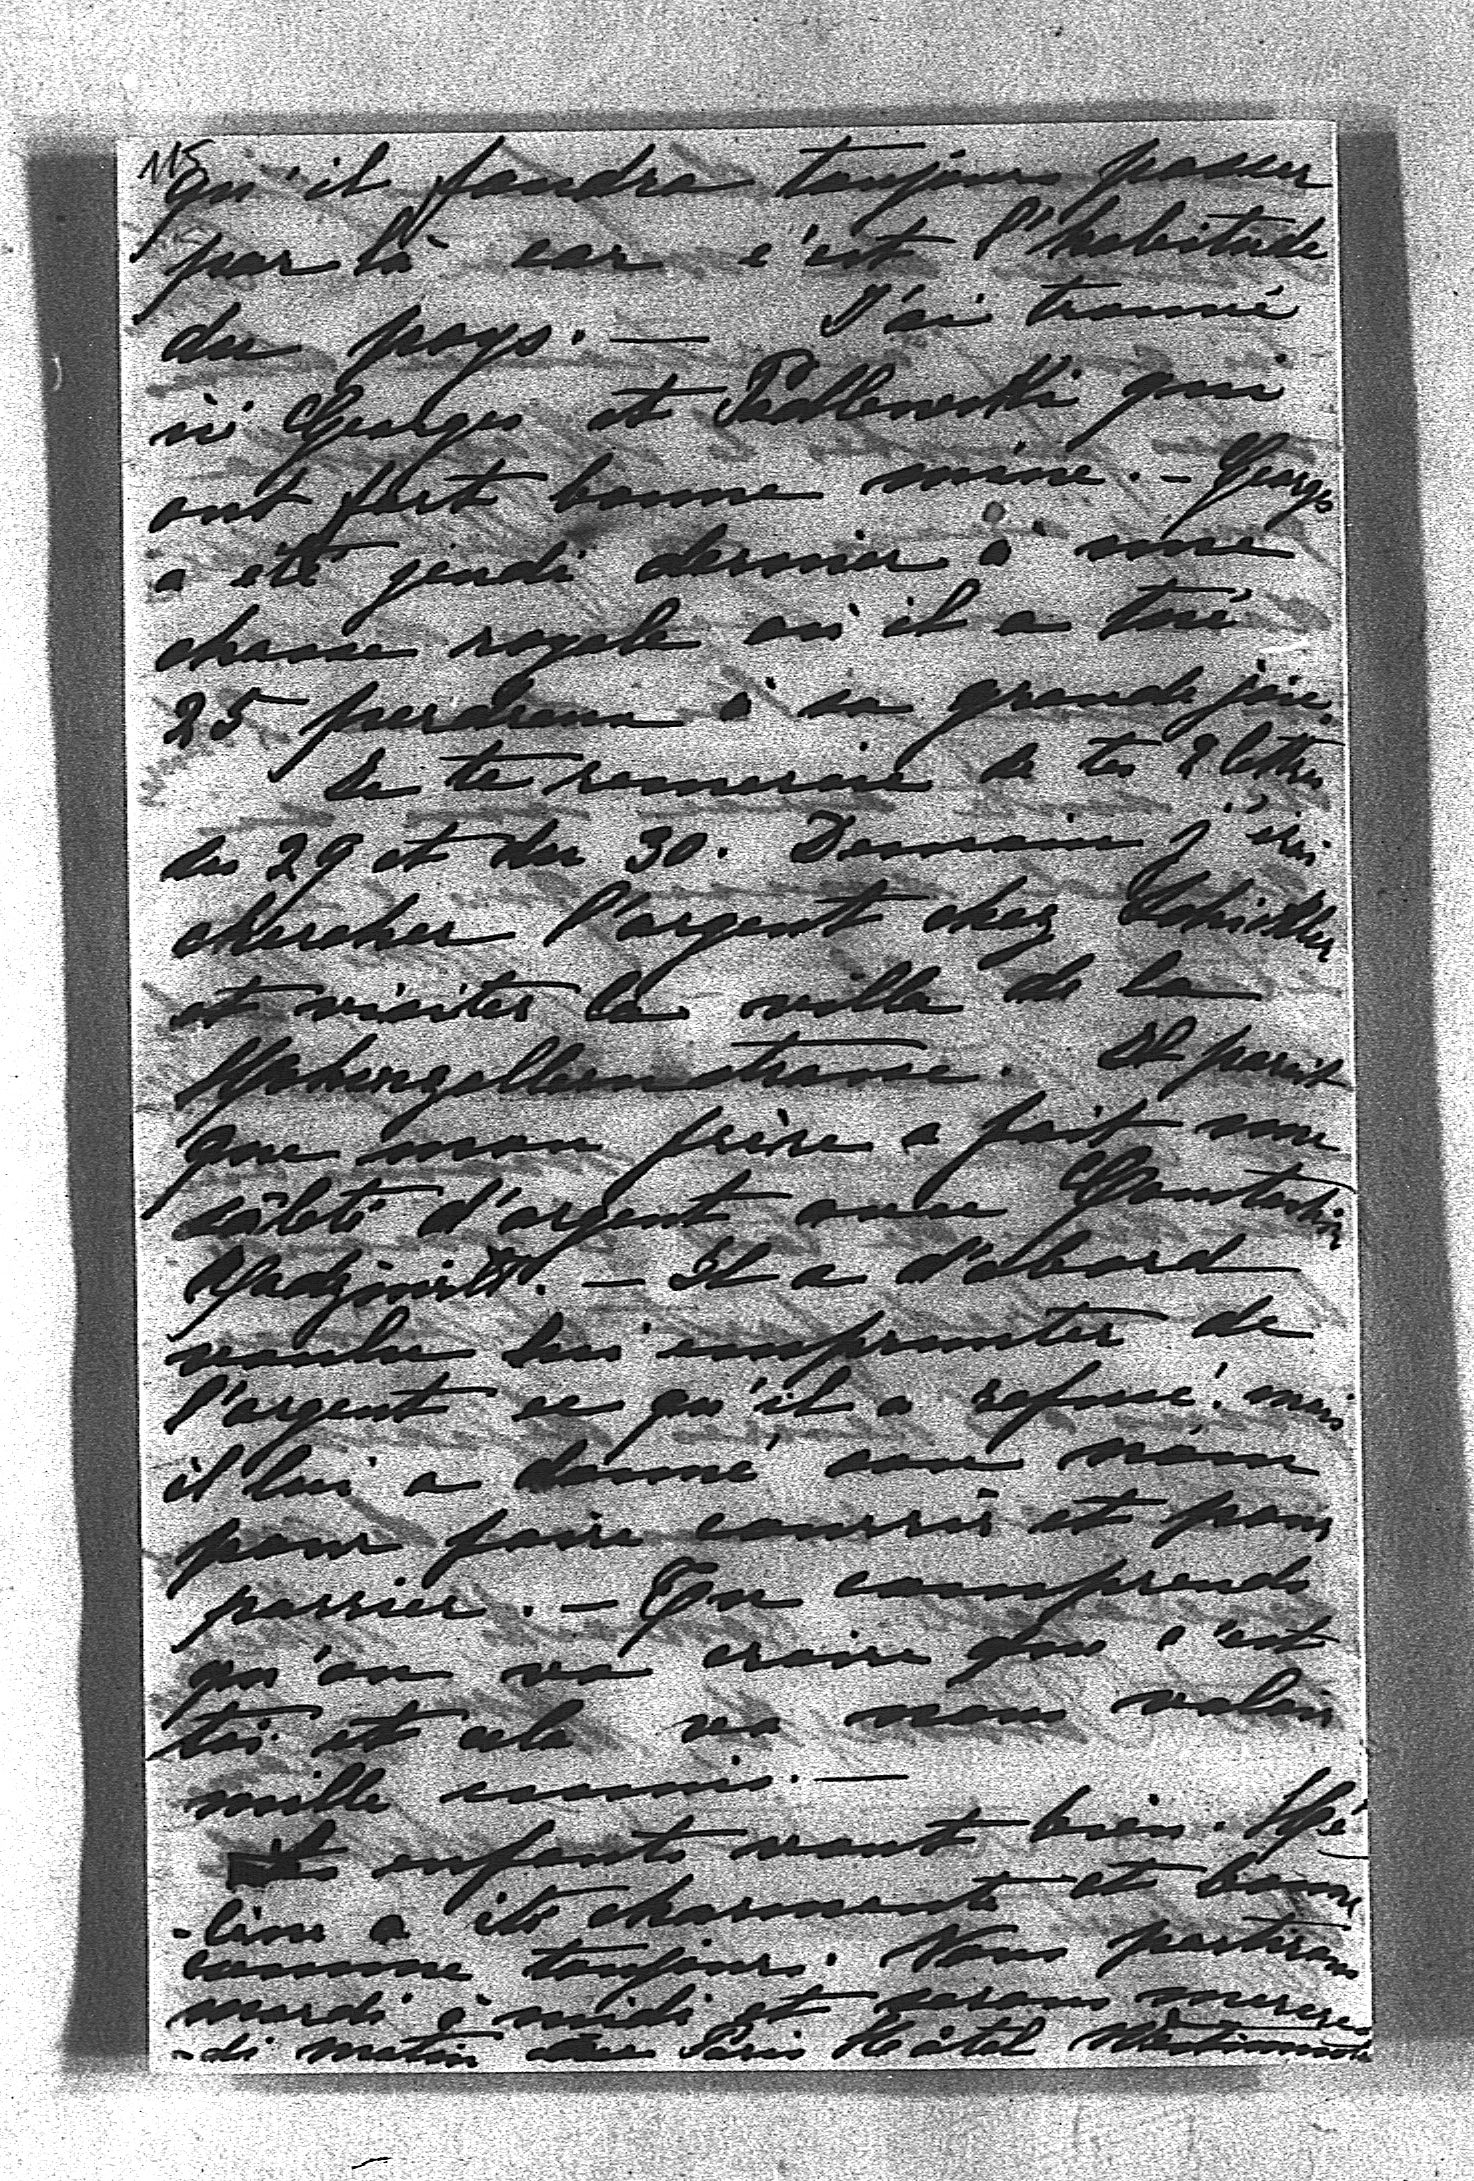 115
qu'il faudra toujours passer
par là car c'est l'habitude
du pays. — J'ai trouvé
ici Georges et Padlewski qui
ont fort bonne mine. — Georges
a été jeudi dernier à une
chasse royale où il a tiré
25 perdreaux à sa grande joie.
Je te remercie de tes 2 lettres
du 29 et du 30. Demain j'irai
chercher l'argent chez Schickler
et visiter la villa de la
Hohenzollernstrasse. Il parait
que mon frère a fait une
saleté d'argent avec Constantin
. — Il a d'abord
voulu lui emprunter de
l'argent ce qu'il a refusé. mais
il lui a donné son nom
pour faire courrir et pour
parrier. — Tu comprends
qu'on va croire que c'est
toi et cela va nous valoir
mille ennuis. —
Les enfants vont bien. Hé-
-lène a été charmante et bonne
comme toujours. Nous partirons
mardi à midi et serons mercre-
-di matin à Paris Hôtel Westminster